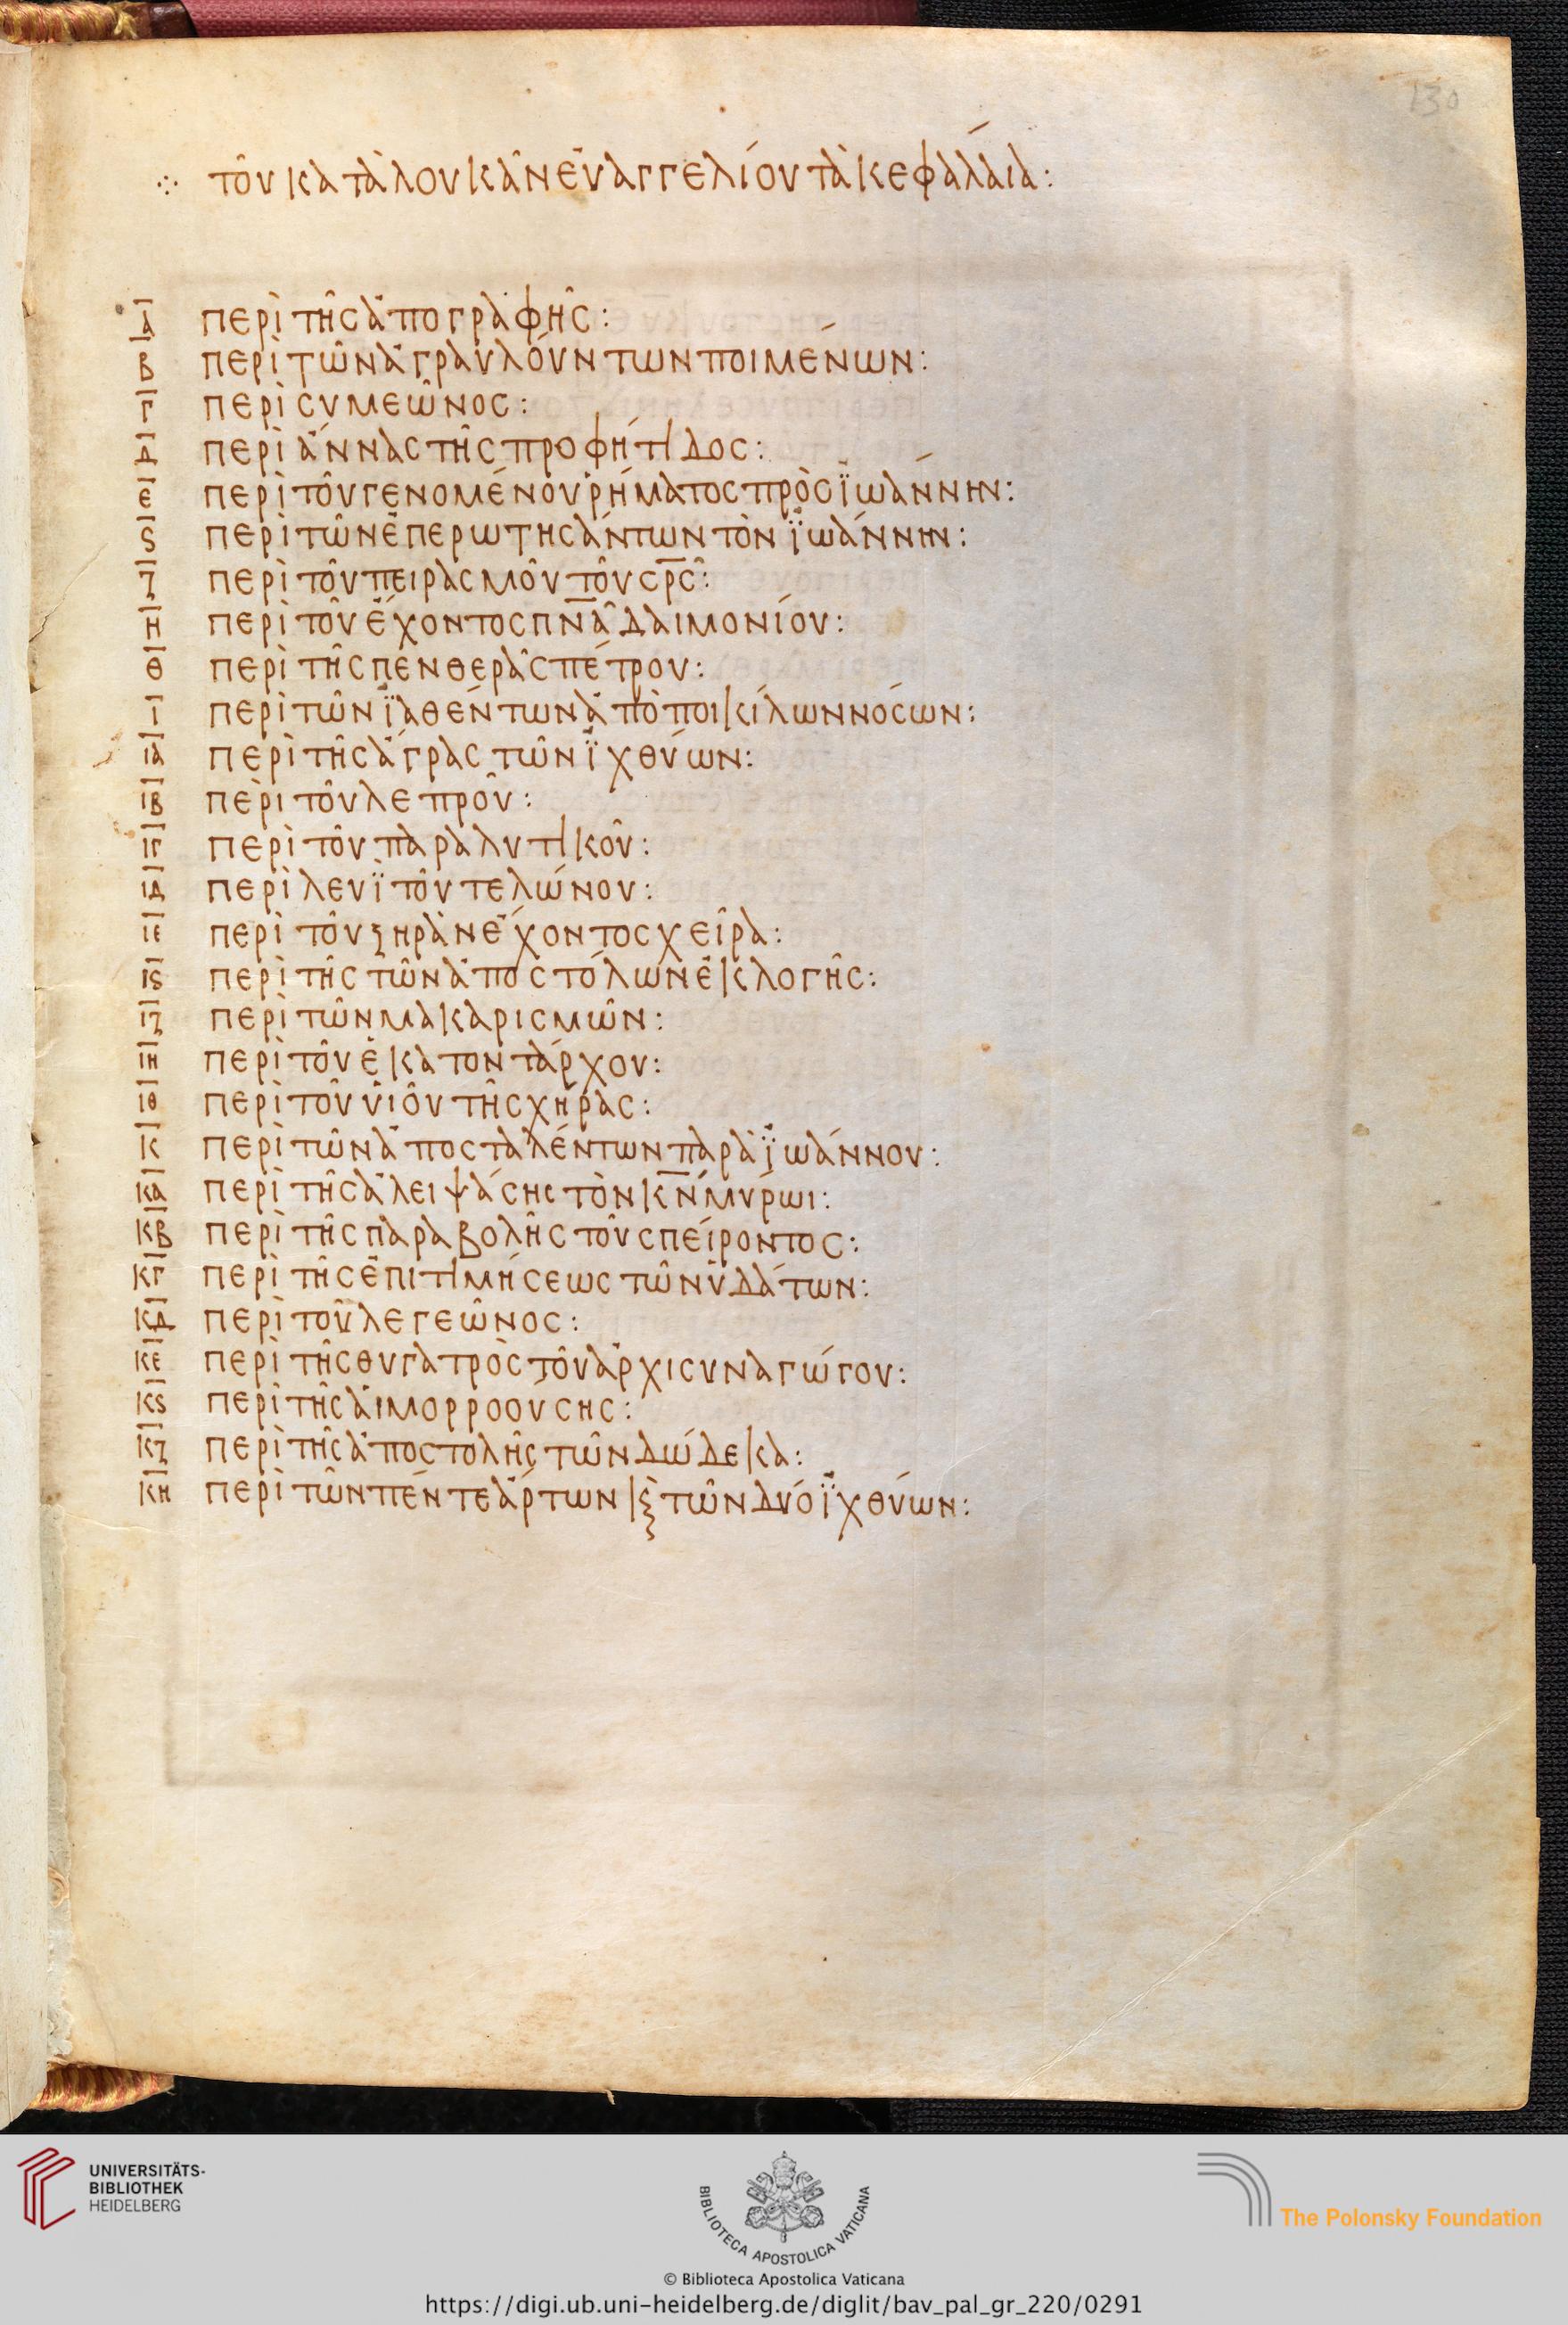 130
⁘ τοῦ κατὰ λουκᾶν ἐυαγγελίου τὰ κεφάλαια:
Α περὶ τῆς ἀπογραφῆς:
Β περὶ τῶν ἀγραυλόυντων ποιμένων:
Γ περὶ συμεῶνος:
Δ περὶ ἄννας τῆς προφήτιδος:
Ε περὶ τοῦ γενομένου ῥήματος πρὸς ϊωάννην:
Ϛ περὶ τῶν ἐπερωτησάντων τὸν ϊωάννην:
Ζ περὶ τοῦ πειρασμοῦ τοῦ σρ̅ς:
Η περὶ τοῦ ἔχοντος πν̅α δαιμονίου:
Θ περὶ τῆς πενθερᾶς πέτρου:
Ι περὶ τῶν ϊαθέντων ἀπὸ ποικίλων νόσων:
ΙΑ περὶ τῆς ἄγρας τῶν ϊχθύων:
ΙΒ περὶ τοῦ λεπροῦ:
ΙΓ περὶ τοῦ παραλυτικοῦ:
ΙΔ περὶ λευϊ τοῦ τελώνου:
ΙΕ περὶ τοῦ ξηρὰν ἔχοντος χεῖρα:
ΙϚ περὶ τῆς τῶν ἀποστόλων ἐκλογῆς:
ΙΖ περὶ τῶν μακαρισμῶν:
ΙΗ περὶ τοῦ ἑκατοντάρχου:
ΙΘ περὶ τοῦ υἱοῦ τῆς χήρας:
Κ περὶ τῶν ἀποσταλέντων παρὰ ϊωάννου:
ΚΑ περὶ τῆς ἀλειψάσης τὸν κν̅ μύρωι:
ΚΒ περὶ τῆς παραβολῆς τοῦ σπείροντος:
ΚΓ περὶ τῆς ἐπιτιμήσεως τῶν ὑδάτων:
ΚΔ περὶ τοῦ λεγεῶνος:
ΚΕ περὶ τῆς θυγατρὸς τοῦ ἀρχισυναγώγου:
ΚϚ περὶ τῆς ἁιμορροουσης:
ΚΖ περὶ τῆς ἀποστολῆς τῶν δώδεκα:
ΚΗ περὶ τῶν πέντε ἄρτων κ̀ τῶν δύο ϊχθύων:
UNIVERSITÄTS-
BIBLIOTHEK
HEIDELBERG
BIBLIOTECA APOSTOLICA VATICANA
The Polonsky Foundation
© Biblioteca Apostolica Vaticana
https://digi.ub.uni-heidelberg.de/diglit/bav_pal_gr_220/0291